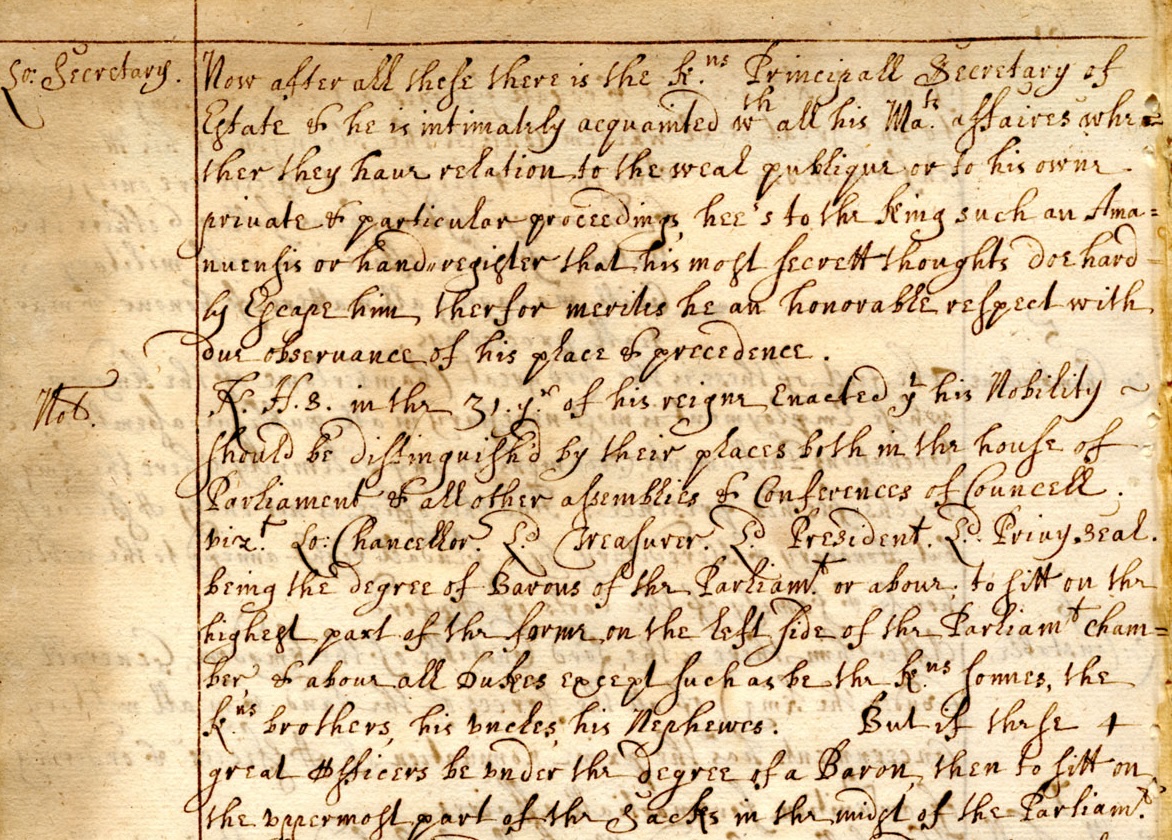 Lo: Secretary.
Now after all these there is the K.ns Principall Secretary of
Estate & he is intimately acquainted wth all his Ma.ts affaires whe=
ther they haue relation to the weal publique or to his owne
private & particular proceedings, hee's to the King such an Ama=
nuensis or hand-register that his most secrett thoughts doe hard
ly Escape him, therfor merites he an honorable respect with
due observance of his place & precedence.
Not.
K. H. 8. in the 31. y.r of his reigne Enacted yt his Nobility ~
should be distinguish'd by their places both in the house of
Parliament & all other assemblies & Conferences of Councell.
viz.t Lo: Chancellor. L.d Treasurer. L.d President. L.d Privy. seal.
being the degree of Barons of the Parliam.t or aboue; to sitt on the
highest part of the forme on the left side of the Parliamt cham=
ber, & aboue all Dukes except such as be the K.ns sonnes, the
K.ns brothers, his vncles, his Nephewes. But if these 4
great Officers be vnder the degree of a Baron, then to sitt on
the vppermost part of the Sacks in the midst of the Parliam.t